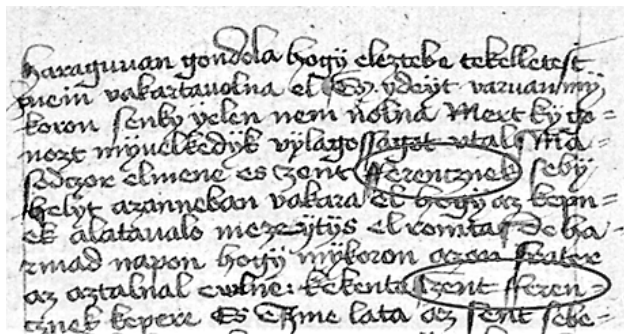 haraguuan gondola hogÿ eleztebe tekelletest
vakartauolna el Es ÿdeÿt varuan mÿ
koron senkÿ ÿelen nem uolna Mert kÿ go=
nozt mÿuelkedÿk vÿlagossagot vtal Ma=
sodczor elmene es zent fferencznek sebÿ
helÿt azonneban vakara el hogÿ az kepn=
ek alataualo mezeÿtÿs el romta De ha=
rmad napon hogÿ mÿkoron azon frater
az aztalnal ewlne: tekenta zent fferen=
cznek kepere Es Ezme lata az sent sebe=